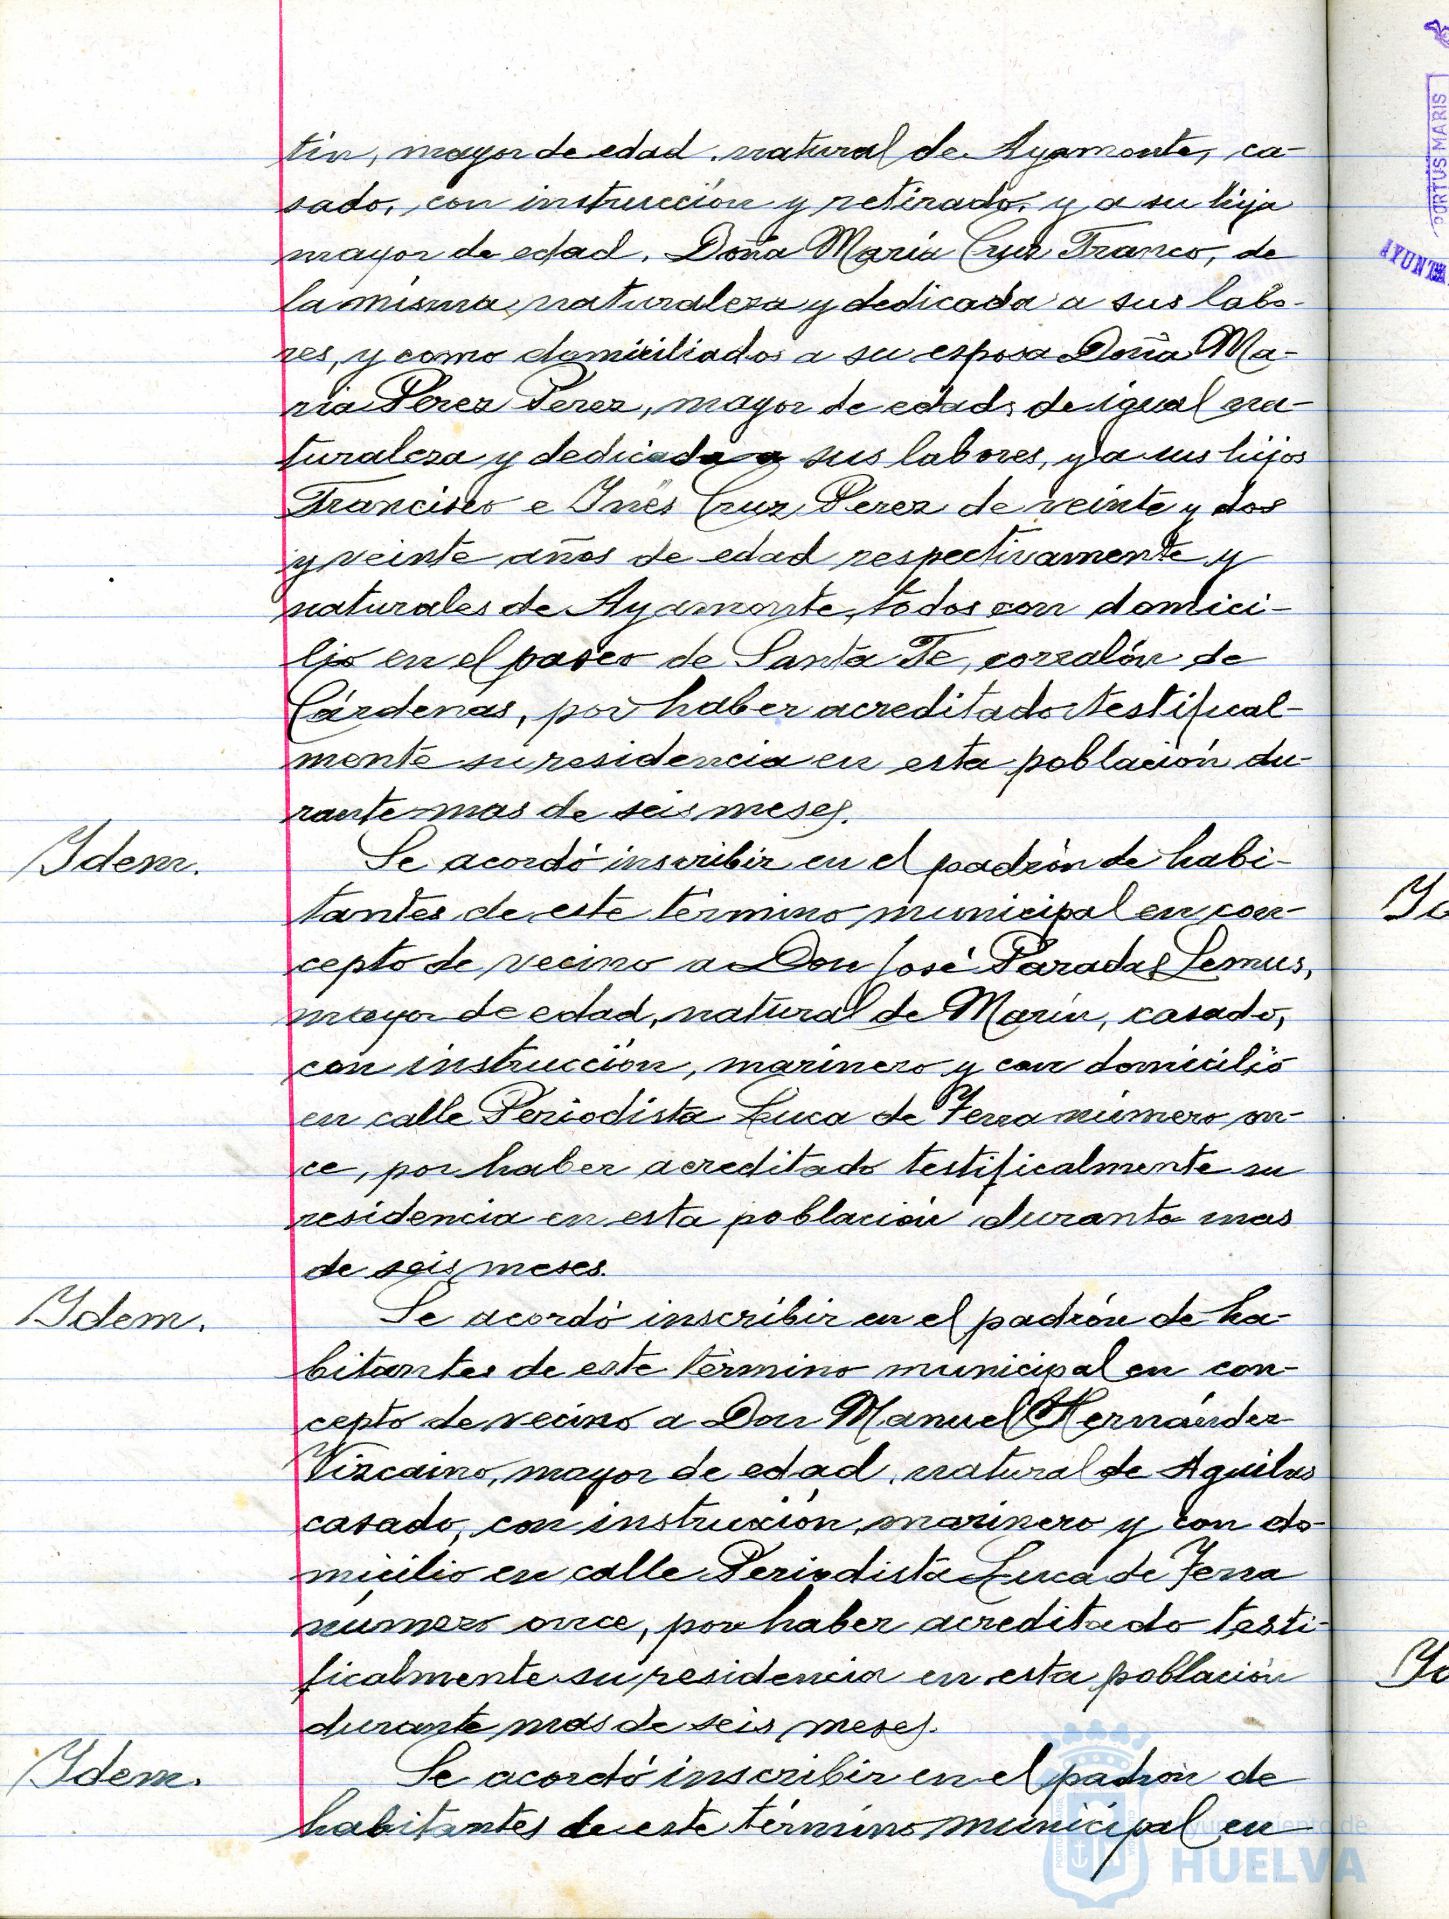 tín, mayor de edad, natural de Ayamonte, ca-
sado, con instrucción y retirado, y a su hija
mayor de edad, Doña María Cruz Franco, de
la misma naturaleza y dedicada a sus labo-
res, y como domiciliados a su esposa Doña Ma-
ria Pérez Perez, mayor de edad, de igual na-
turaleza y dedicada a sus labores, y a sus hijos
Francisco e Inés Cruz Pérez de veinte y dos
y veinte años de edad respectivamente y
naturales de Ayamonte, todos con domici-
lio en el paseo de Santa Fe, corralón de
Cárdenas, por haber acreditado testifical-
mente su residencia en esta población du-
rante mas de seis meses.
Idem.
Se acordó inscribir en el padrón de habi-
tantes de este término municipal en con-
cepto de vecino a Don José Paradas Lemus,
mayor de edad, natural de Marín, casado,
con instrucción, marinero y con domicilio
en calle Periodista Luca de Tena número on-
ce, por haber acreditado testificalmente su
residencia en esta población durante mas
de seis meses.
Idem.
Se acordó inscribir en el padrón de ha-
bitantes de este término municipal en con-
cepto de vecino a Don Manuel Hernández
Vizcaino, mayor de edad, natural de Aguilas
casado, con instrucción, marinero y con do-
micilio en calle Periodista Luca de Tena
número once, por haber acreditado testi-
ficalmente su residencia en esta población
durante mas de seis meses.
Idem.
Se acordó inscribir en el padrón de
habitantes de este término municipal en
Ayuntamiento de
HUELVA
PORTUS MARIS
AYUNT